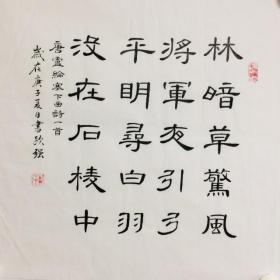 林暗草驚風
將軍夜引弓
平明尋白羽
沒在石棱中
唐盧綸塞下曲詩一首
歲在庚子夏月書於